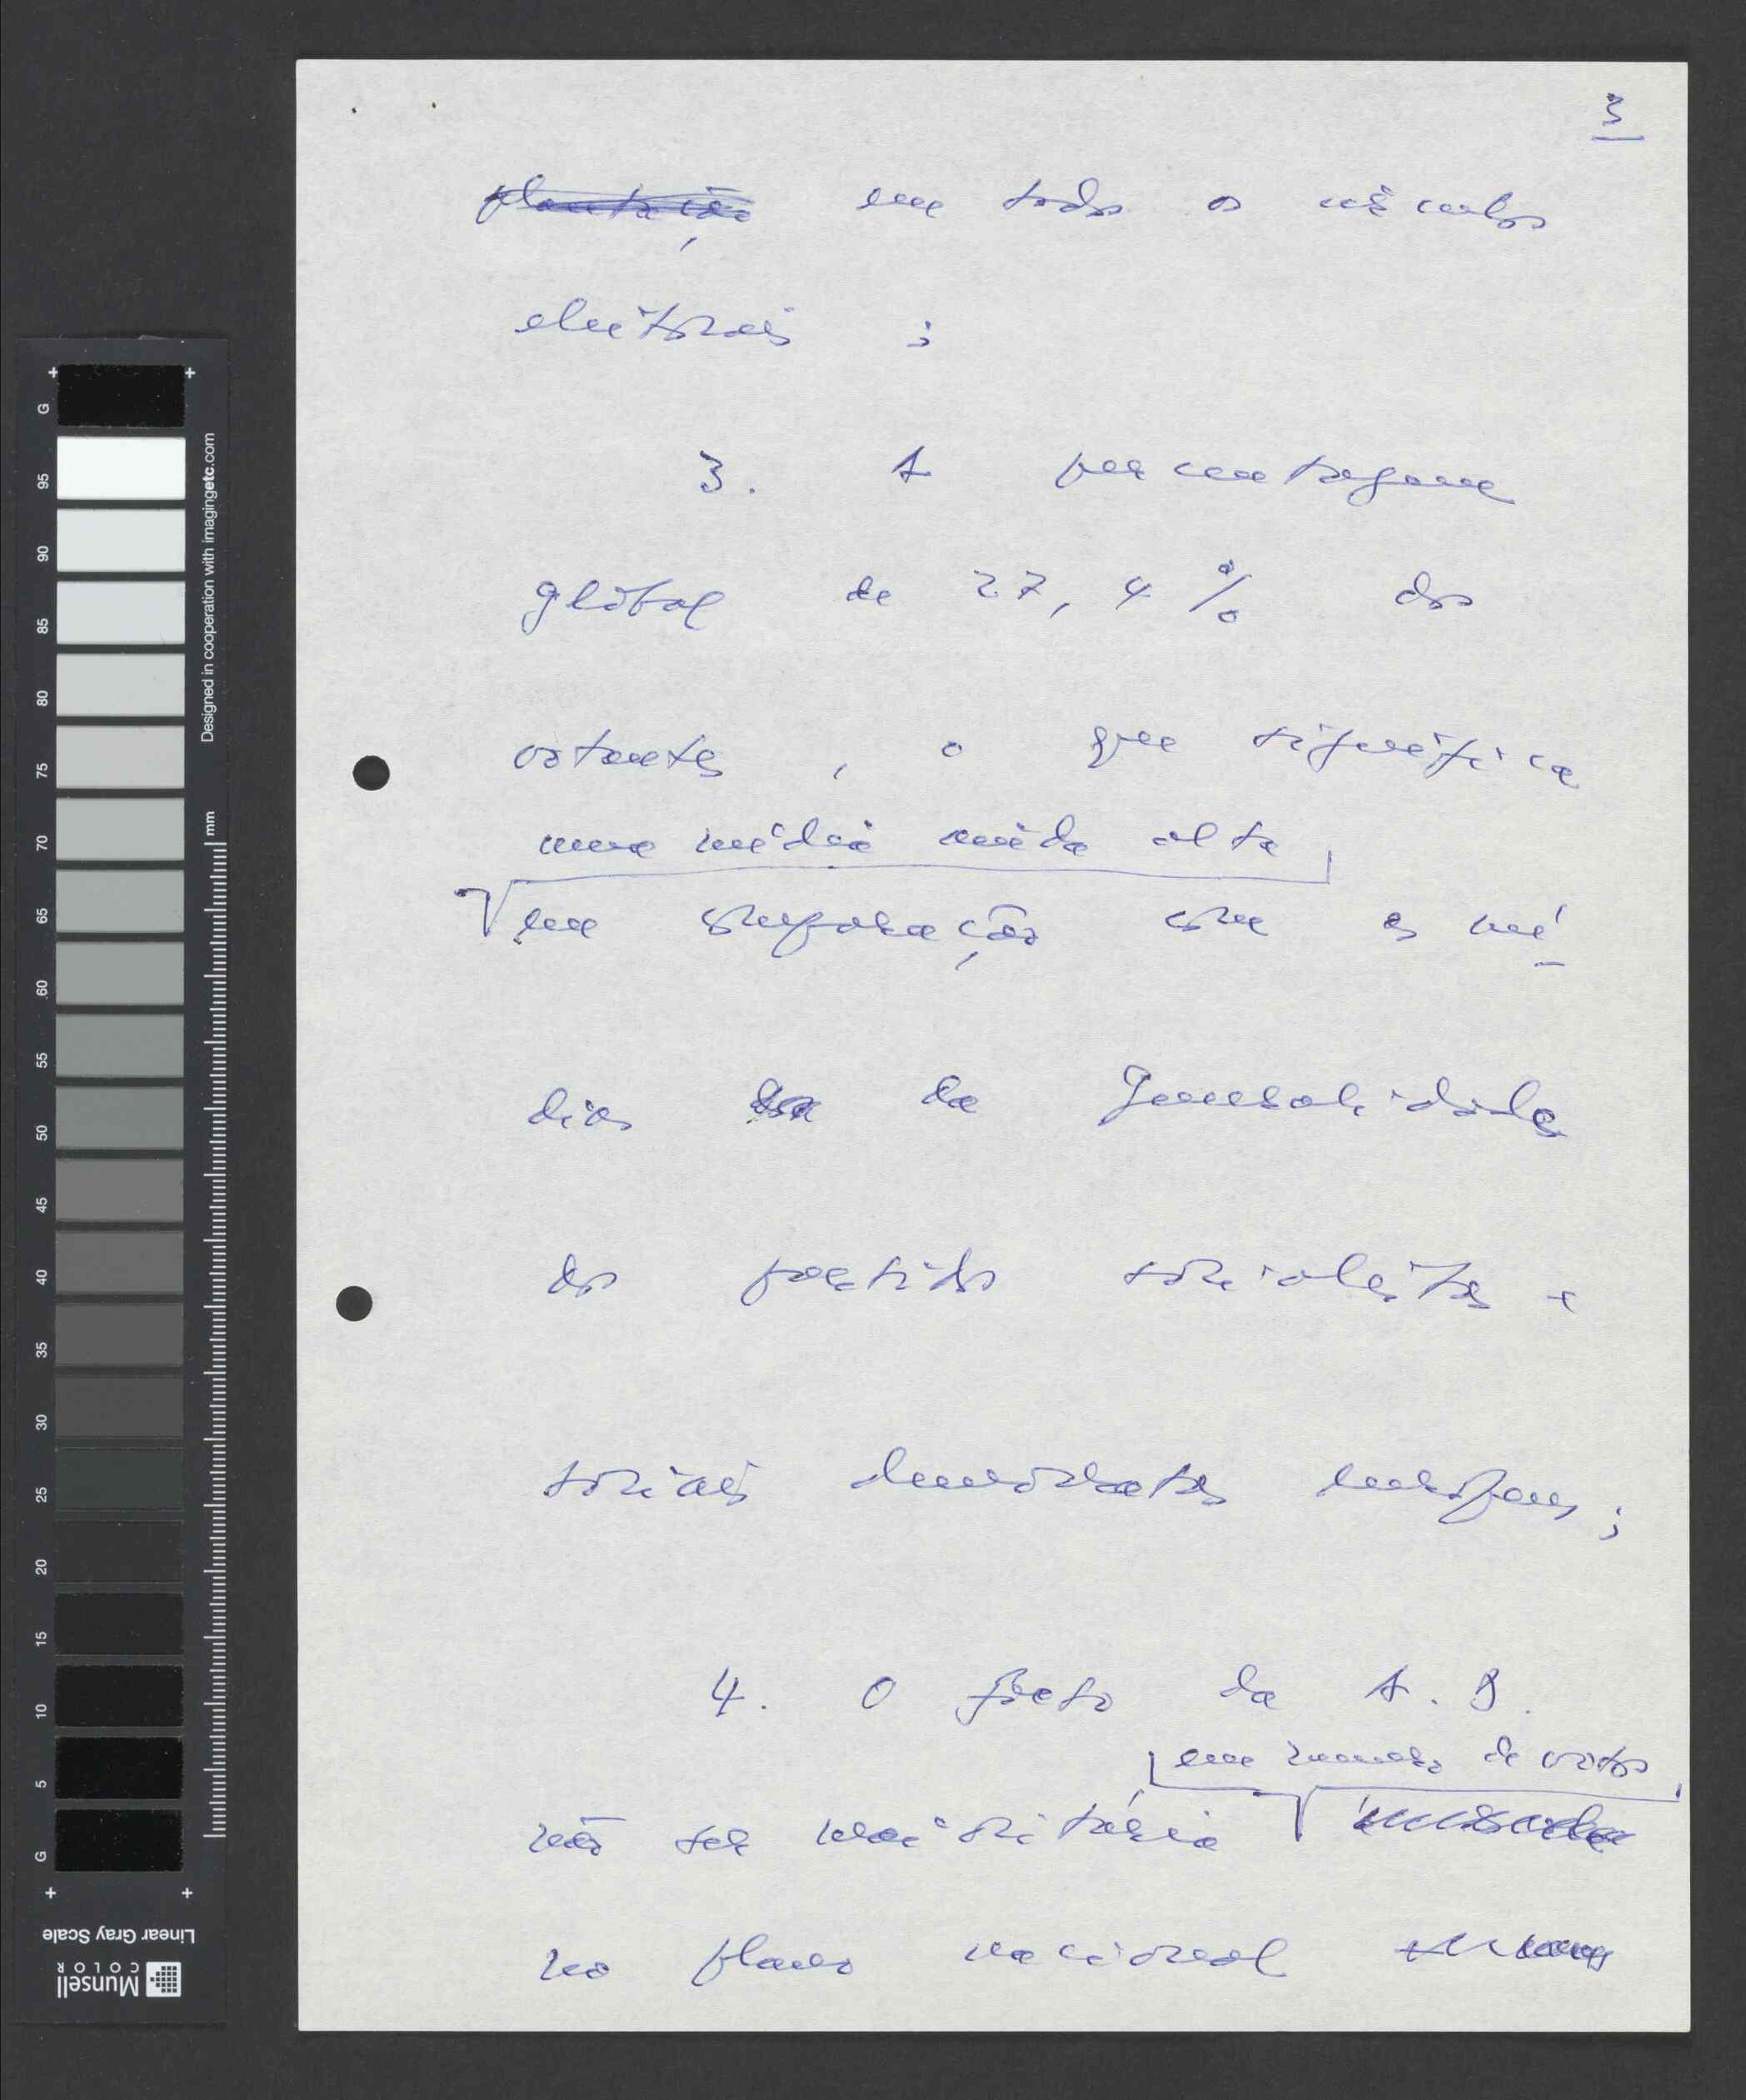 3
plantação em todos os círculos
eleitorais ;
3. A percentagem
global de 27,4 % dos
votantes , o que significa
uma média ainda alta
em comparação com as mé
dias da generalidade
dos partidos socialistas e
sociais democratas europeus ;
4. O facto da A. D.
em número de votos
não ser maioritária
no plano nacional
G
95
90
85
80
75
70
65
60
55
50
45
40
35
30
25
20
15
10
5
G
Designed in cooperation with imagingetc.com
mm
Linear Gray Scale
Munsell
COLOR